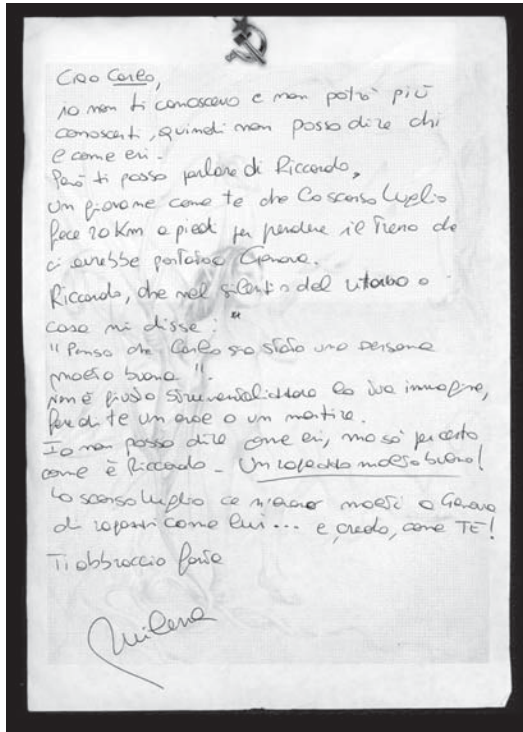 Ciao Carlo,
io non ti conoscevo e non potrò più
conoscerti, quindi non posso dire chi
e come eri.
Però ti posso parlare di Riccardo,
un giovane come te che lo scorso luglio
fece 20 Km a piedi per prendere il treno che
ci avrebbe portato a Genova.
Riccardo, che nel silenzio del ritorno a
casa mi disse: "
"Penso che Carlo sia stato una persona
molto buona".
Non è giusto strumentalizzare la tua immagine,
fare di te un eroe o un martire.
Io non posso dire come eri, ma so per certo
come è Riccardo - Un ragazzo molto buono!
Lo scorso luglio ce n'erano molti a Genova
di ragazzi come lui... e credo, come TE!
Ti abbraccio forte
Milena